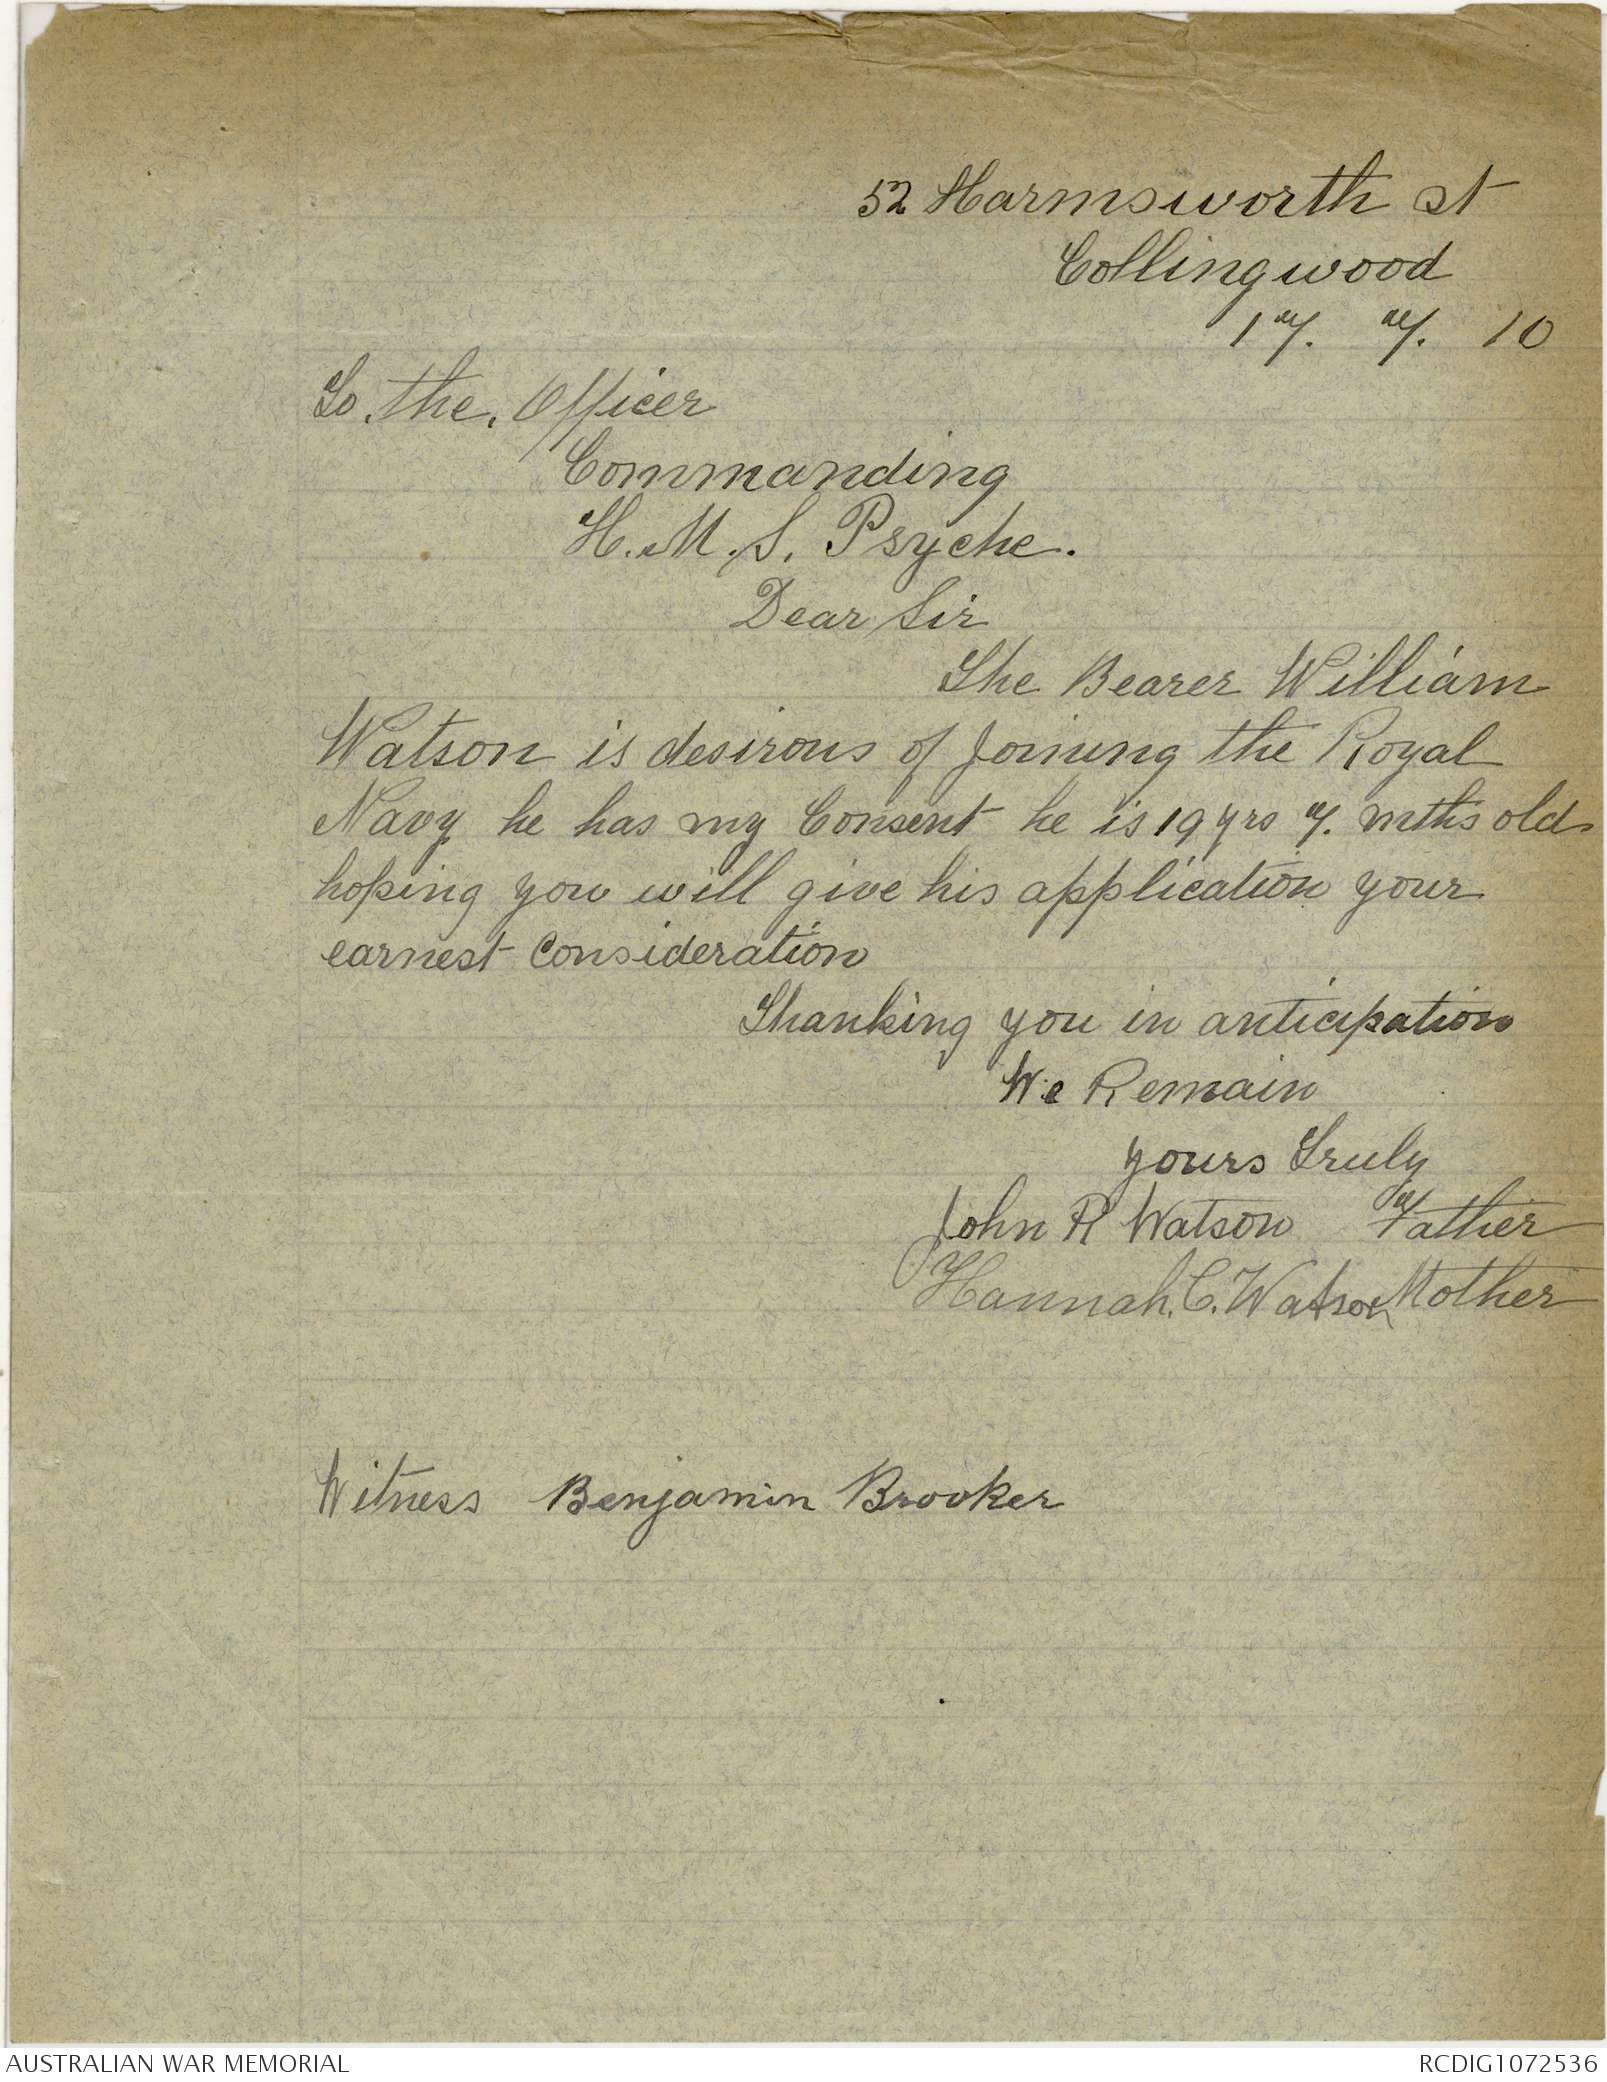 52 Harmsworth st
Collingwood
17. 7. 10
To the. Officer
Commanding
H.M.S. Psyche.
Dear Sir
The Bearer William
Watson is desirous of Joining the Royal
Navy he has my Consent he is 19 yrs 7. mths old
hoping you will give his application your
earnest Consideration
Thanking you in anticipation
We Remain
yours Truly
John R Watson Father
Hannah. C. Watson Mother
Witness Benjamin Brooker
AUSTRALIAN WAR MEMORIAL
RCDIG1072536